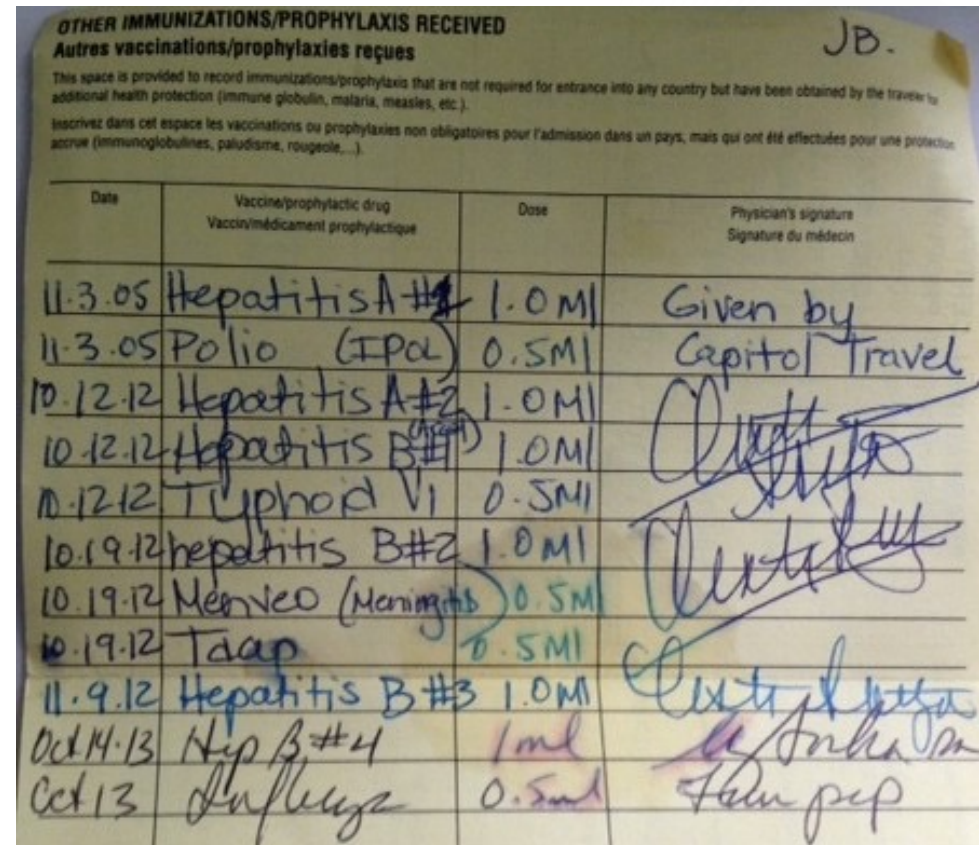 OTHER IMMUNIZATIONS/PROPHYLAXIS RECEIVED
JB.
Autres vaccinations/prophylaxies reçues
This space is provided to record immunizations/prophylaxis that are not required for entrance into any country but have been obtained by the traveler for
additional health protection (immune globulin, malaria, measles, etc.).
Inscrivez dans cet espace les vaccinations ou prophylaxies non obligatoires pour l'admission dans un pays, mais qui ont été effectuées pour une protection
accrue (immunoglobulines, paludisme, rougeole,...).
Date Vaccine/prophylactic drug Dose Physician's signature
Vaccin/médicament prophylactique Signature du médecin
11.3.05 Hepatitis A #1 1.0 Ml Given by
11.3.05 Polio (IPOL) 0.5Ml Capitol Travel
10.12.12 Hepatitis A #2 1.0Ml
10.12.12 Hepatitis B #1 1.0Ml
10.12.12 Typhoid Vi 0.5Ml
10.19.12 hepatitis B #2 1.0Ml
10.19.12 Menveo (Meningitis) 0.5Ml
10.19.12 Tdap 0.5Ml
11.9.12 Hepatitis B #3 1.0Ml
Oct 14.13 Hep B #4 1ml
Oct 13 0.5ml